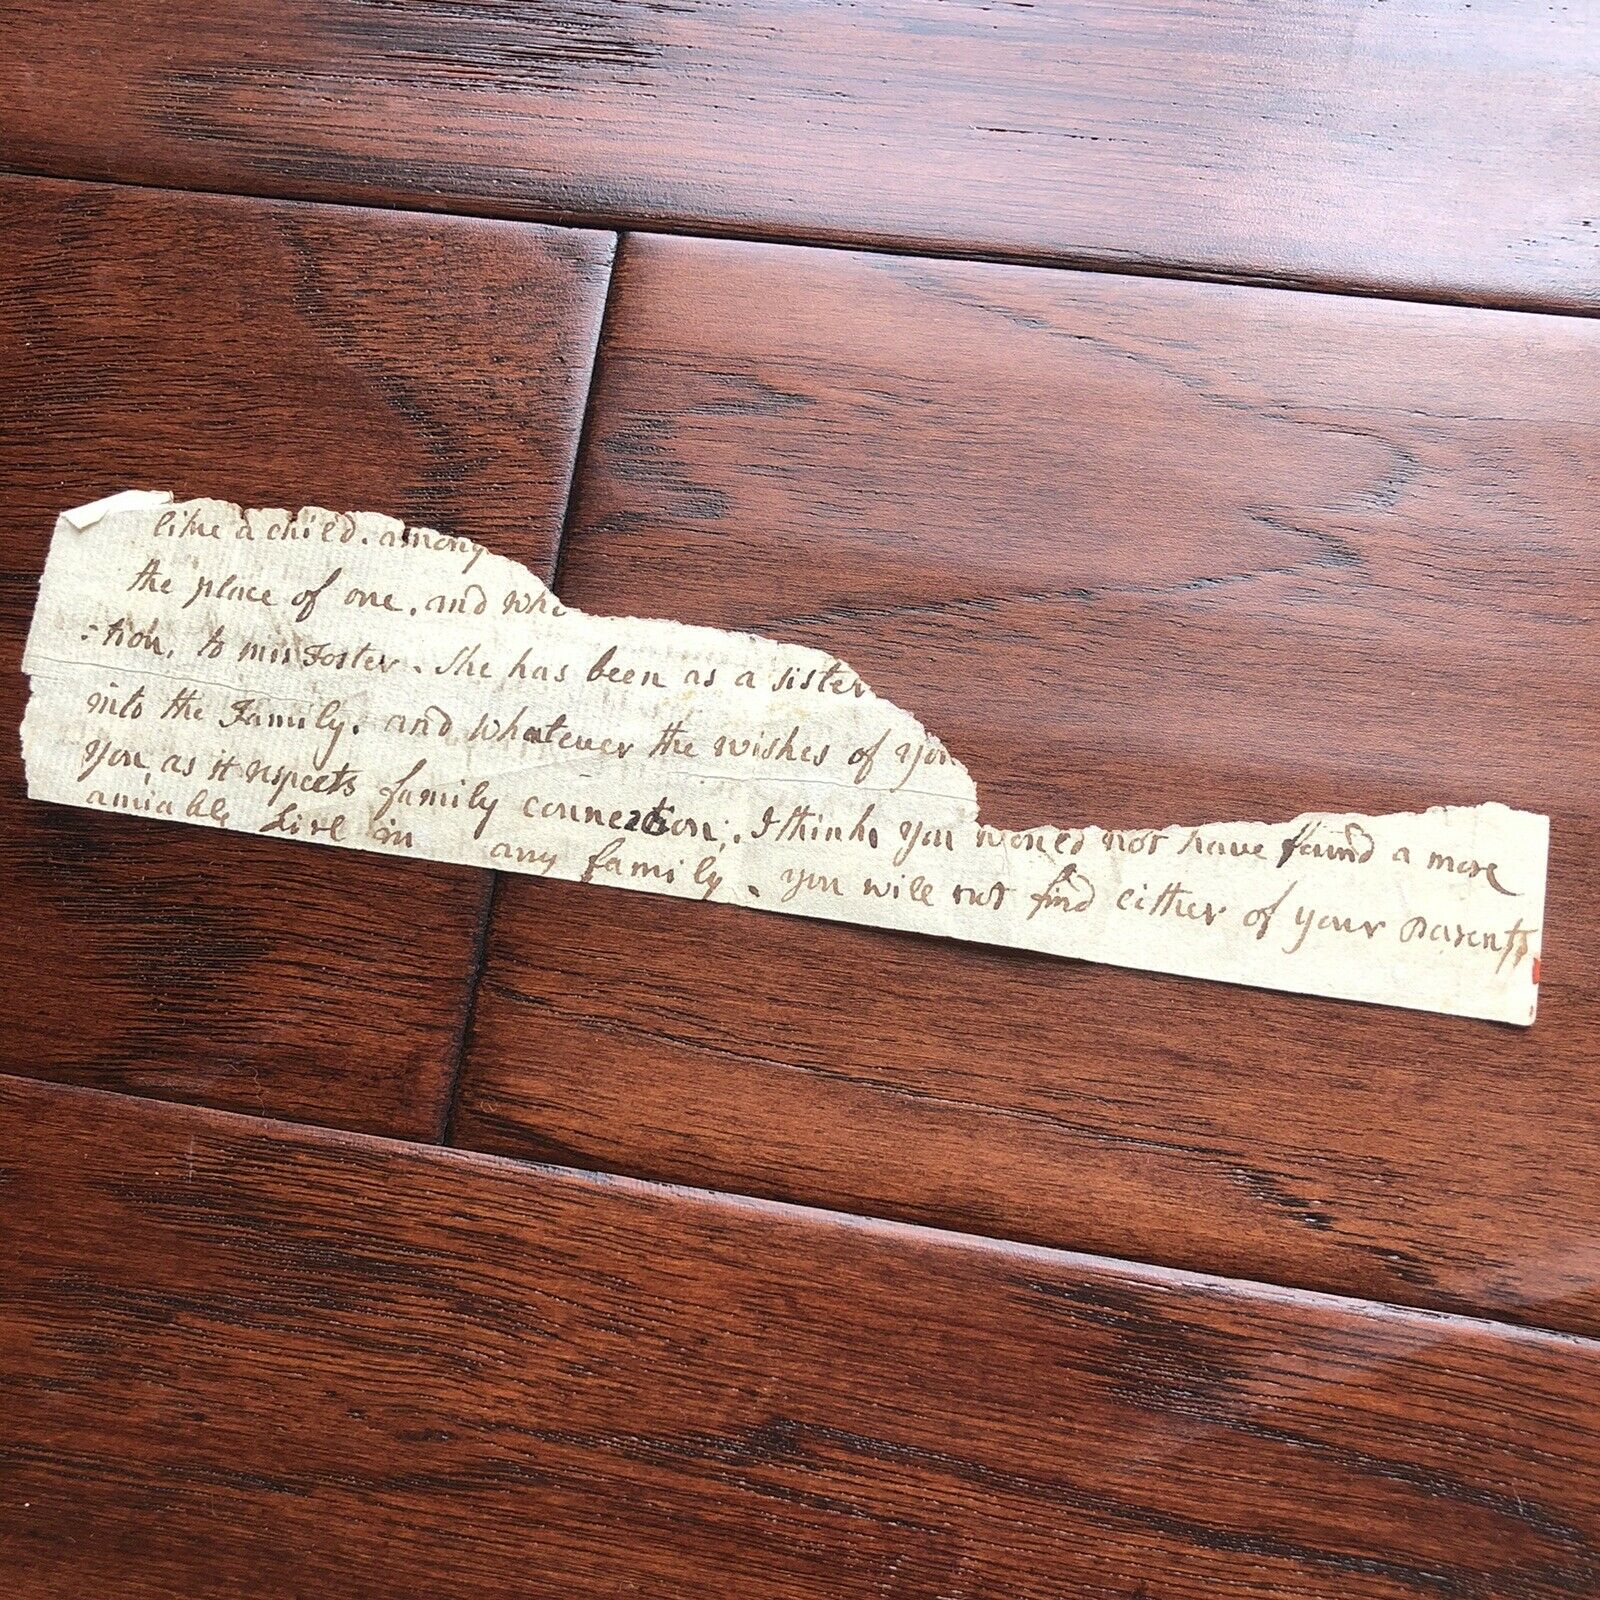 like a child. among
the place of one, and whe
-tion, to miss Foster. She has been as a sister
into the Family. and whatever the wishes of you
you, as it respects family connection; I think you would not have found a more
amiable Girl in any family. you will not find either of your parents